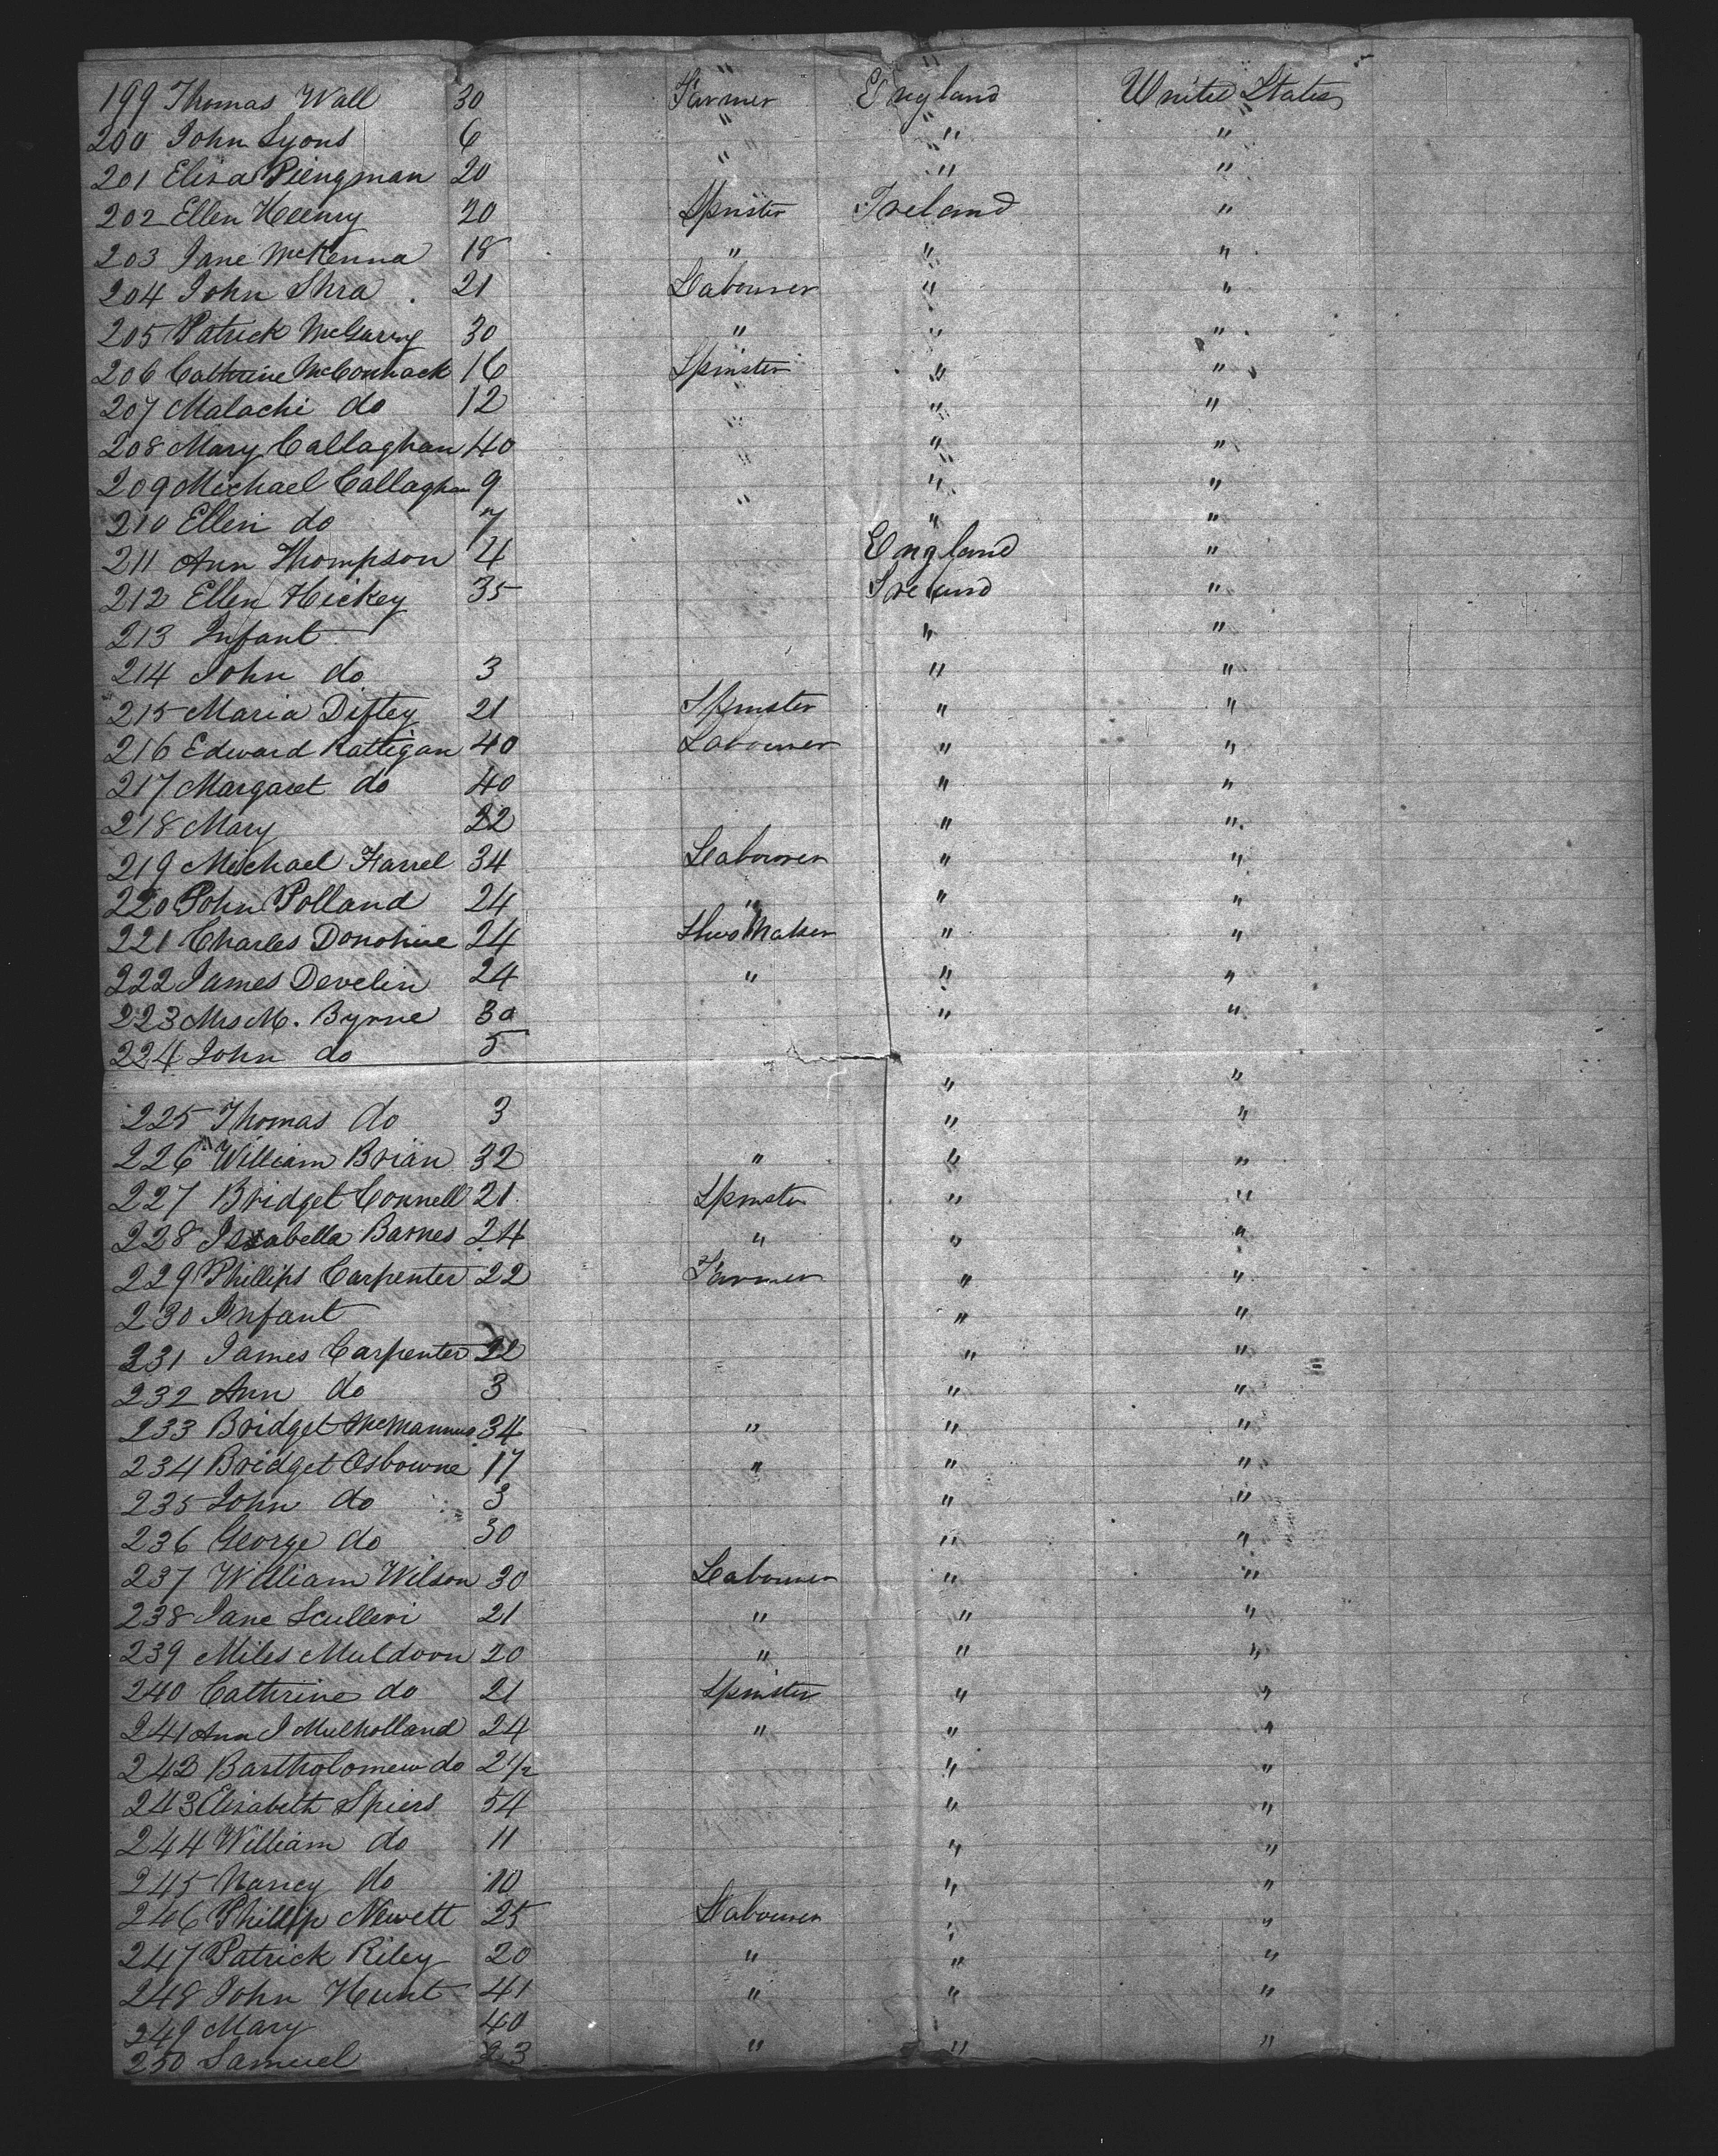 199 Thomas Wall 30 Farmer England United States
200 John Lyons 6 " " "
201 Eliza Piengman 20 " " "
202 Ellen Heeny 20 Spinster Ireland "
203 Jane McKenna 18 " " "
204 John Shea 21 Labourer " "
205 Patrick McGarry 30 " " "
206 Cathrine McCormack 16 Spinster " "
207 Malachi do 12 " " "
208 Mary Callaghan 40 " " "
209 Michael Callaghan 9 " " "
210 Ellen do 7 " "
211 Ann Thompson 4 England "
212 Ellen Hickey 35 Ireland "
213 Infant " "
214 John do 3 " "
215 Maria Diftey 21 Spinster " "
216 Edward Rattigan 40 Labourer " "
217 Margaret do 40 " "
218 Mary 22 " "
219 Michael Farrel 34 Labourer " "
220 John Polland 24 " " "
221 Charles Donohue 24 Shoe Maker " "
222 James Develin 24 " " "
223 Mrs M. Byrne 30 " "
224 John do 5 " "
225 Thomas do 3 " "
226 William Brian 32 " " "
227 Bridget Connell 21 Spinster " "
228 Isabella Barnes 24 " " "
229 Phillips Carpenter 22 Farmer " "
230 Infant " "
231 James Carpenter 22 " "
232 Ann do 3 " "
233 Bridget McMannus 34 " " "
234 Bridget Osbourne 17 " " "
235 John do 3 " "
236 George do 30 " "
237 William Wilson 30 Labourer " "
238 Jane Sculleri 21 " " "
239 Miles Muldoon 20 " " "
240 Cathrine do 21 Spinster " "
241 Ann J Mulholland 24 " " "
242 Bartholomew do 2 1/2 " "
243 Elisabeth Spiers 54 " "
244 William do 11 " "
245 Nancy do 10 " "
246 Phillip Newett 25 Labourer " "
247 Patrick Riley 20 " " "
248 John Hunt 41 " " "
249 Mary 40
250 Samuel 23 " " "